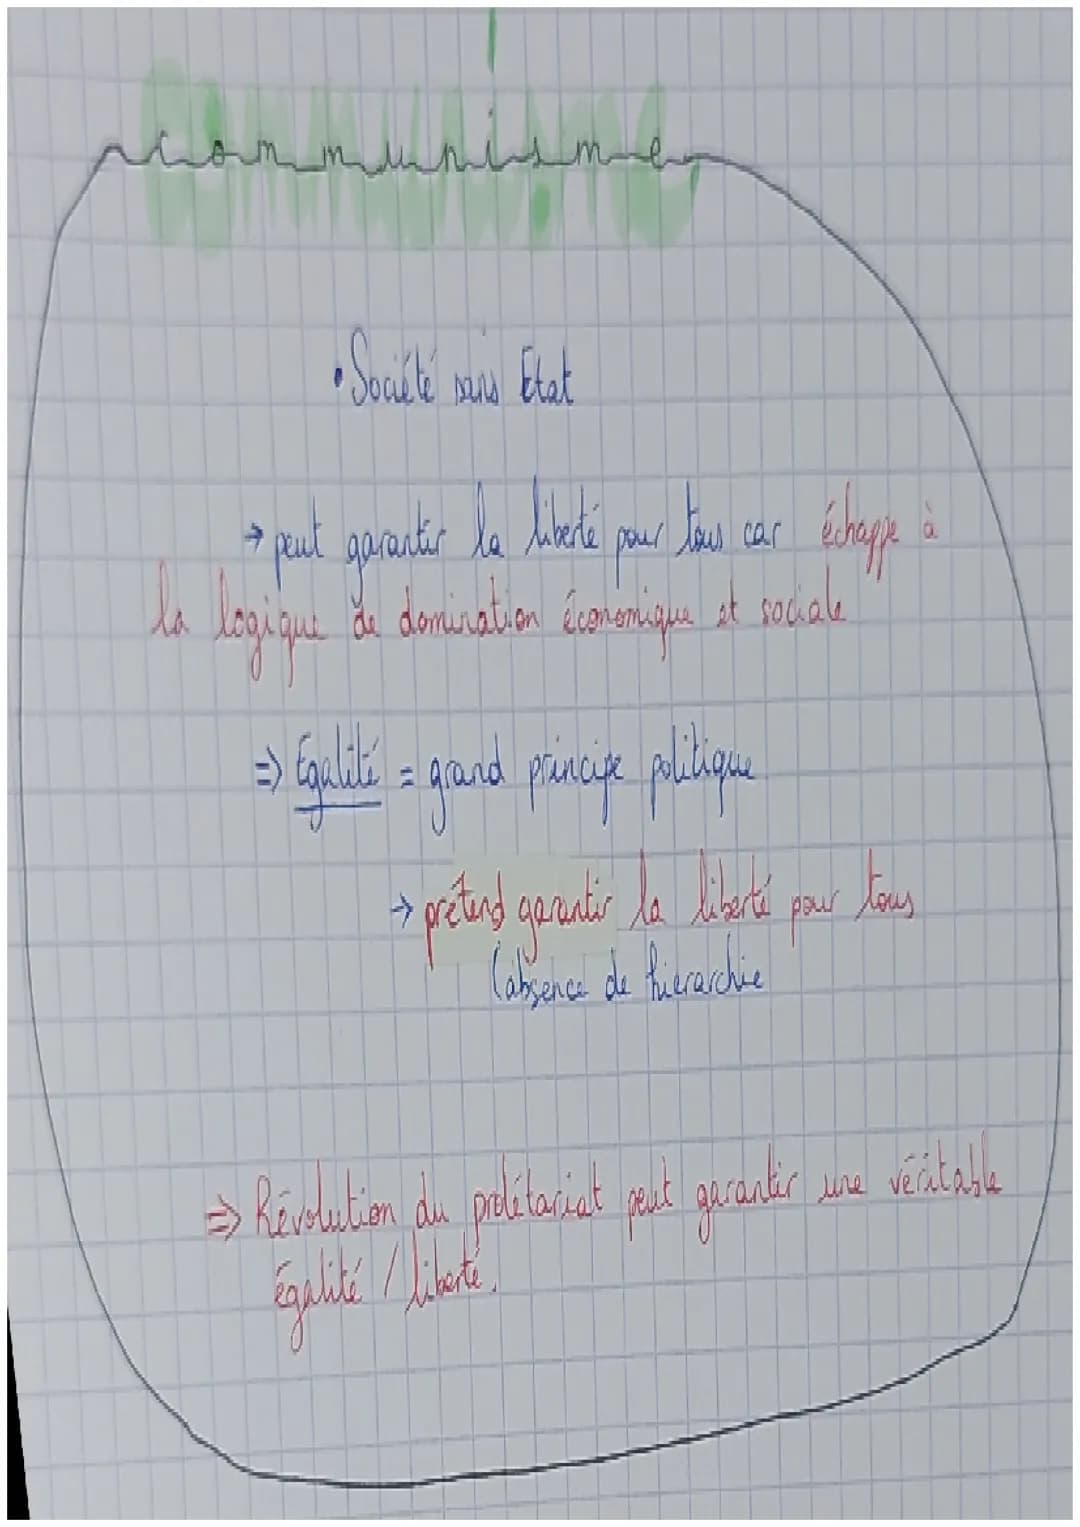 communisme
• Société sans Etat
→ peut garantir la liberté pour tous car échappe à
la logique de domination économique et sociale
=> Egalité = grand principe politique
→ prétend garantir la liberté pour tous
(absence de hierarchie
=> Révolution du prolétariat peut garantir une véritable
égalité / liberté.